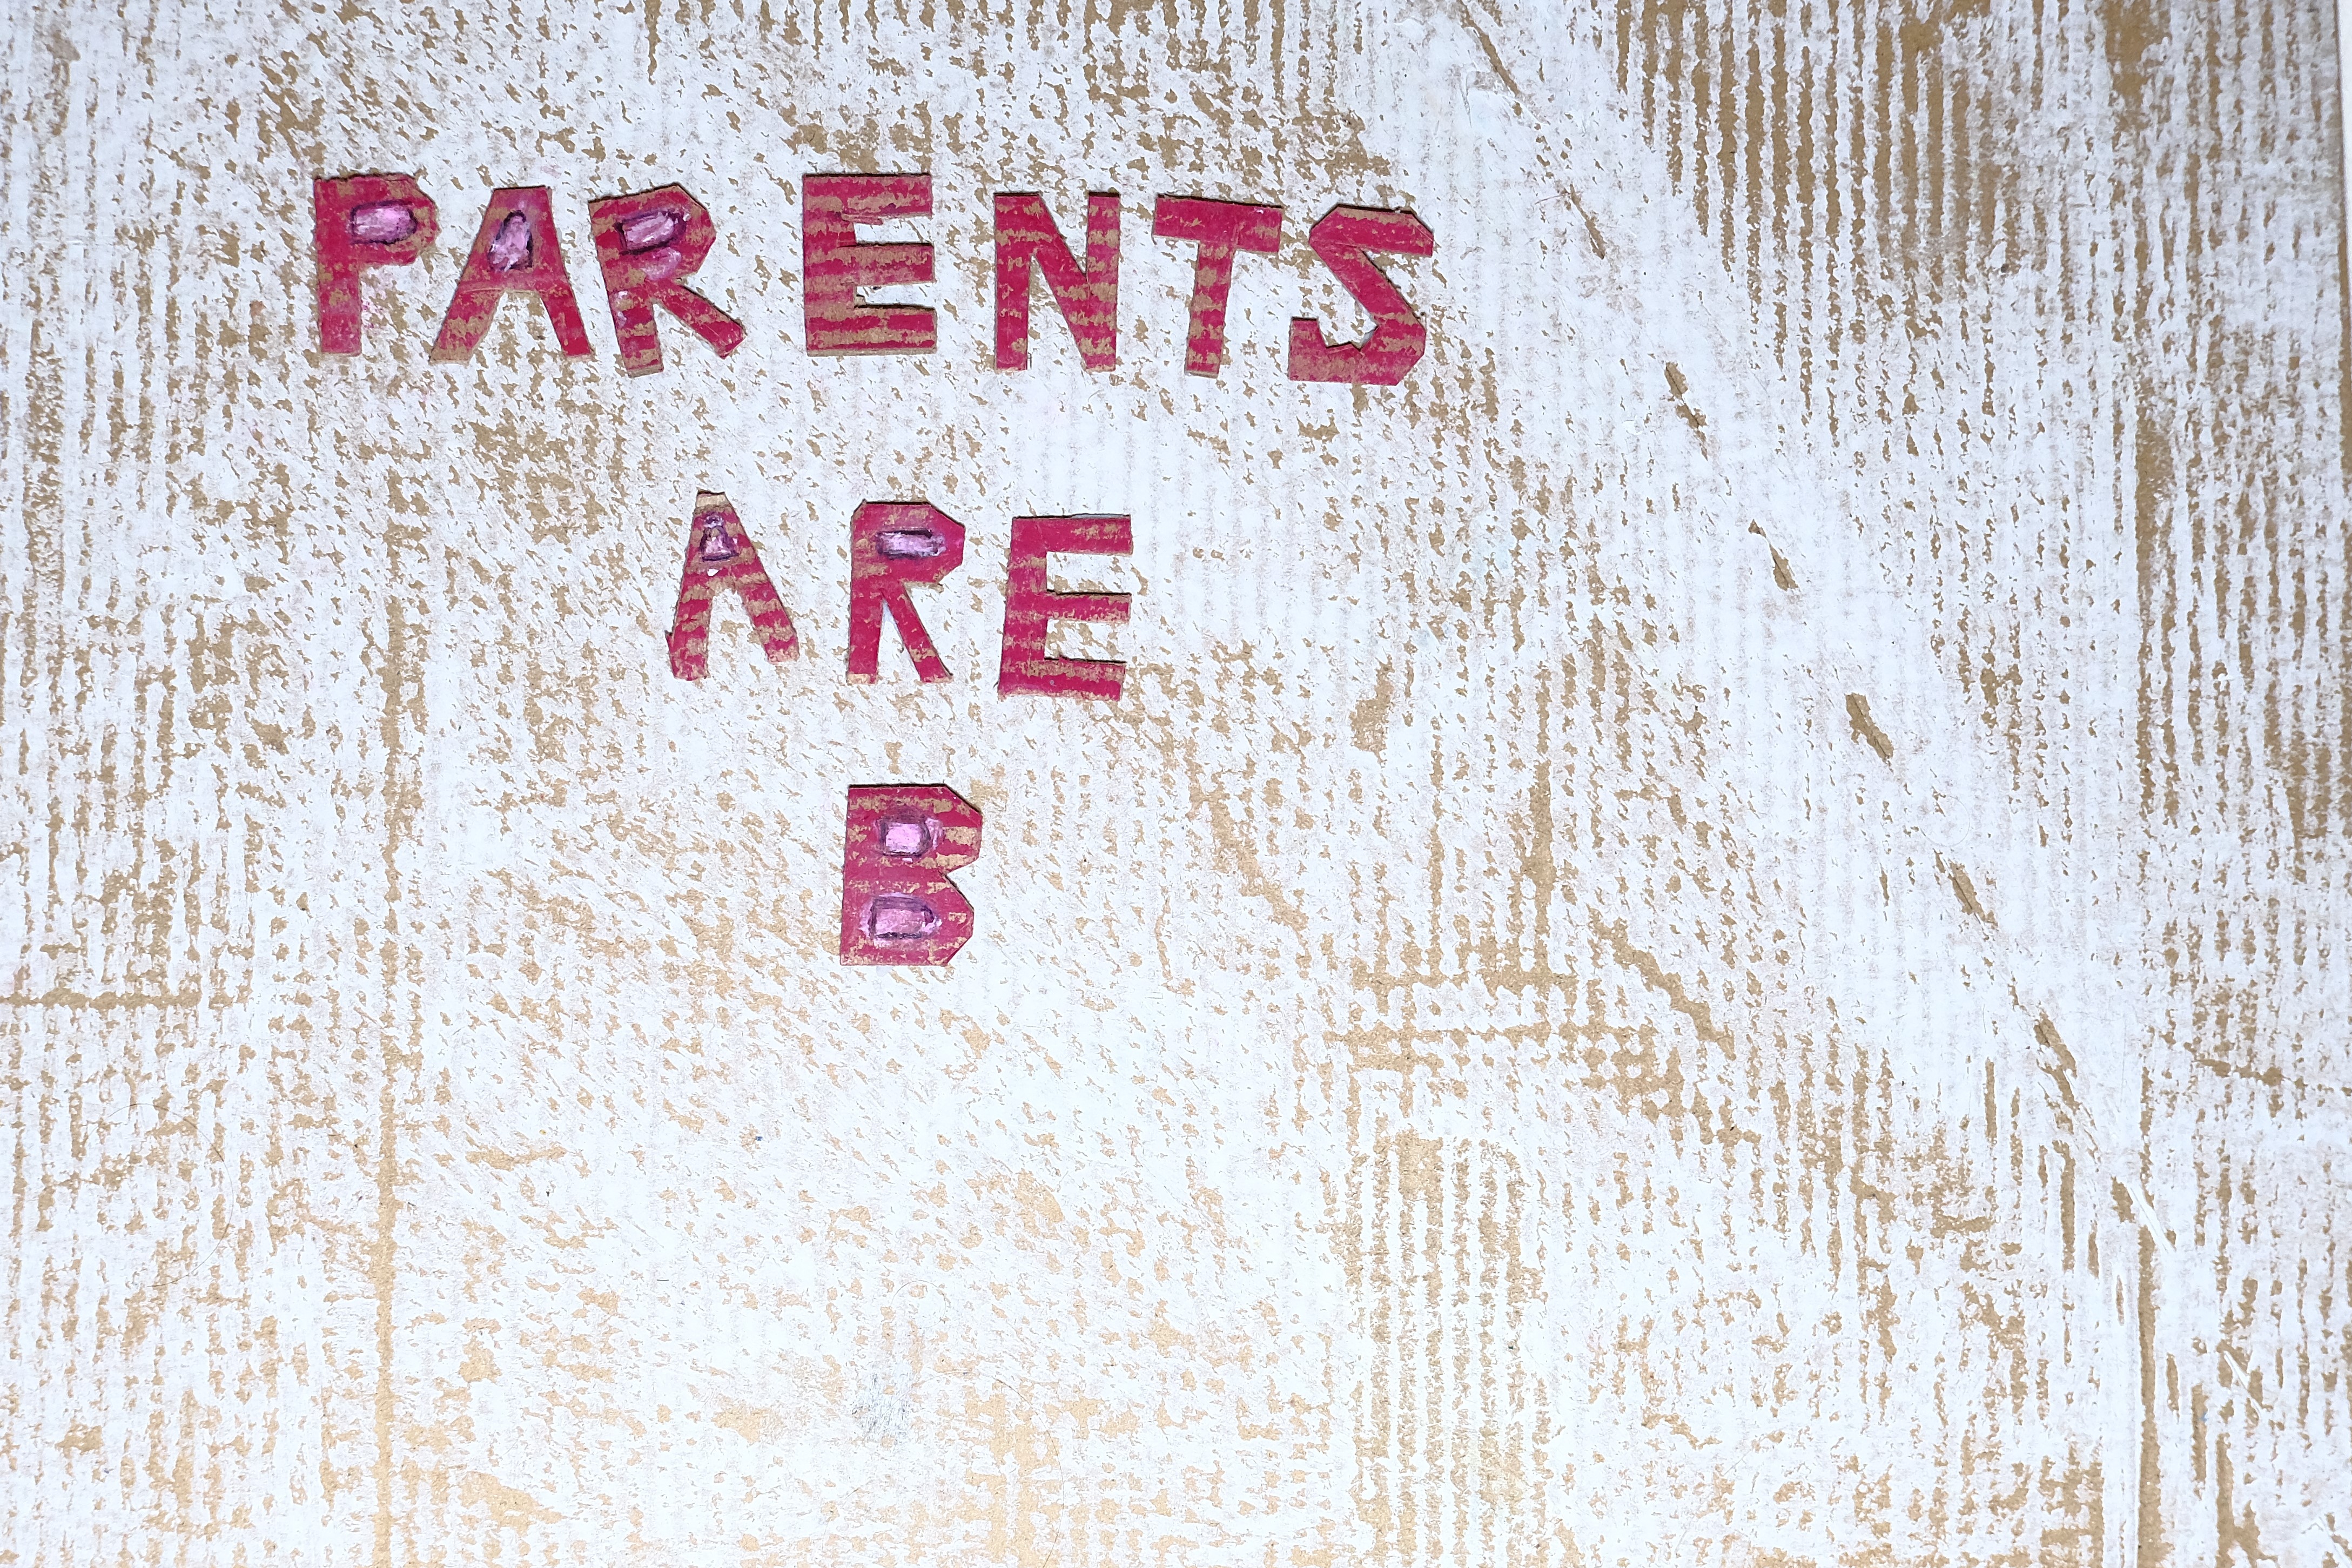 PARENTS
ARE
B